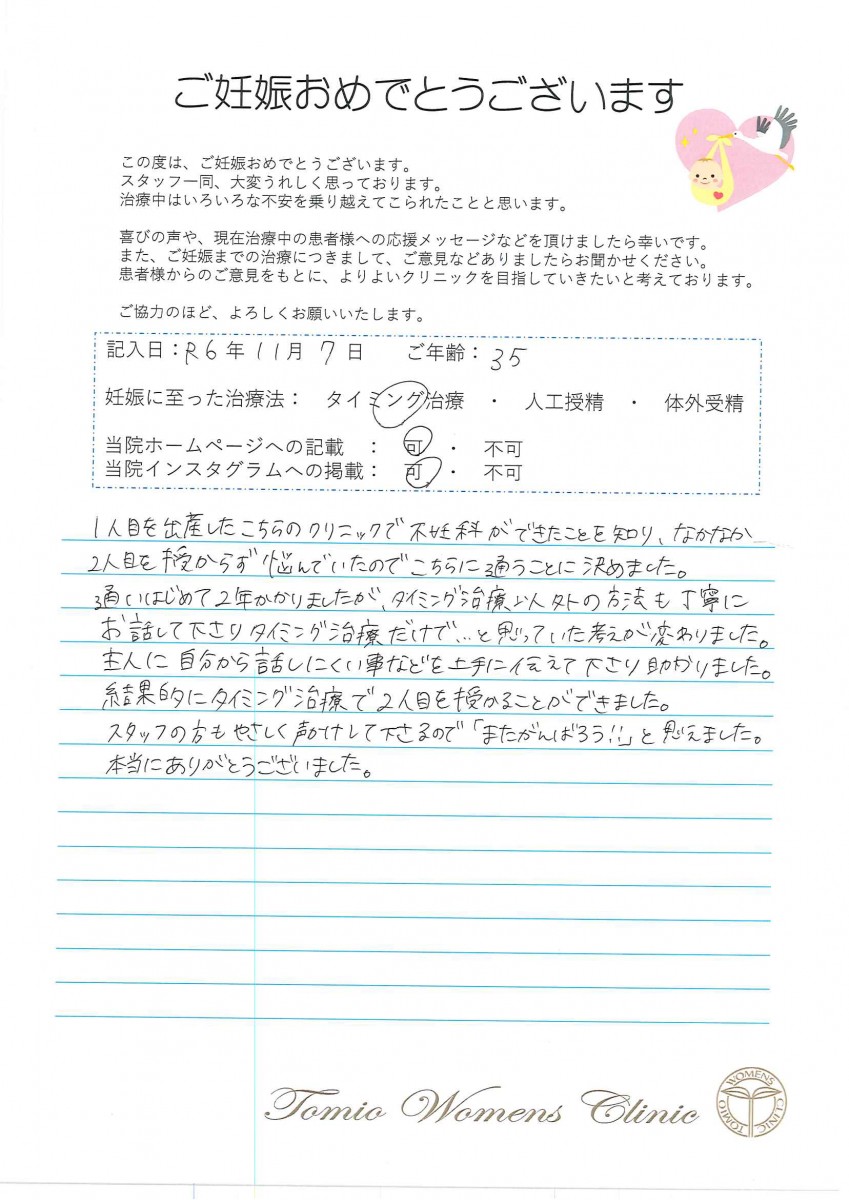 ご妊娠おめでとうございます
この度は、ご妊娠おめでとうございます。
スタッフ一同、大変うれしく思っております。
治療中はいろいろな不安を乗り越えてこられたことと思います。
喜びの声や、現在治療中の患者様への応援メッセージなどを頂けましたら幸いです。
また、ご妊娠までの治療につきまして、ご意見などありましたらお聞かせください。
患者様からのご意見をもとに、よりよいクリニックを目指していきたいと考えております。
ご協力のほど、よろしくお願いいたします。
記入日：R6年11月7日　ご年齢：35
妊娠に至った治療法：　タイミング治療　・　人工授精　・　体外受精
当院ホームページへの記載　：　可　・　不可
当院インスタグラムへの掲載：　可　・　不可
1人目を出産したこちらのクリニックで不妊科ができたことを知り、なかなか
2人目を授からず悩んでいたのでこちらに通うことに決めました。
通いはじめて2年かかりましたが、タイミング治療以外の方法も丁寧に
お話して下さりタイミング治療だけで…と思っていた考えが変わりました。
主人に自分から話しにくい事などを上手に伝えて下さり助かりました。
結果的にタイミング治療で2人目を授かることができました。
スタッフの方もやさしく声かけして下さるので「またがんばろう!!」と思えました。
本当にありがとうございました。
Tomio Womens Clinic
WOMENS CLINIC TOMIO